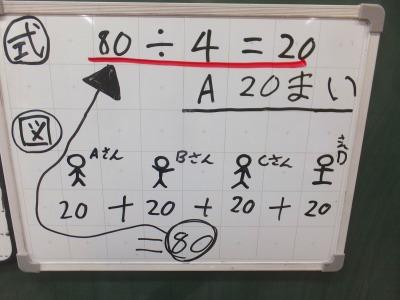 式 80÷4=20
A 20まい
図
Aさん Bさん Cさん Dさん
20+20+20+20
=80